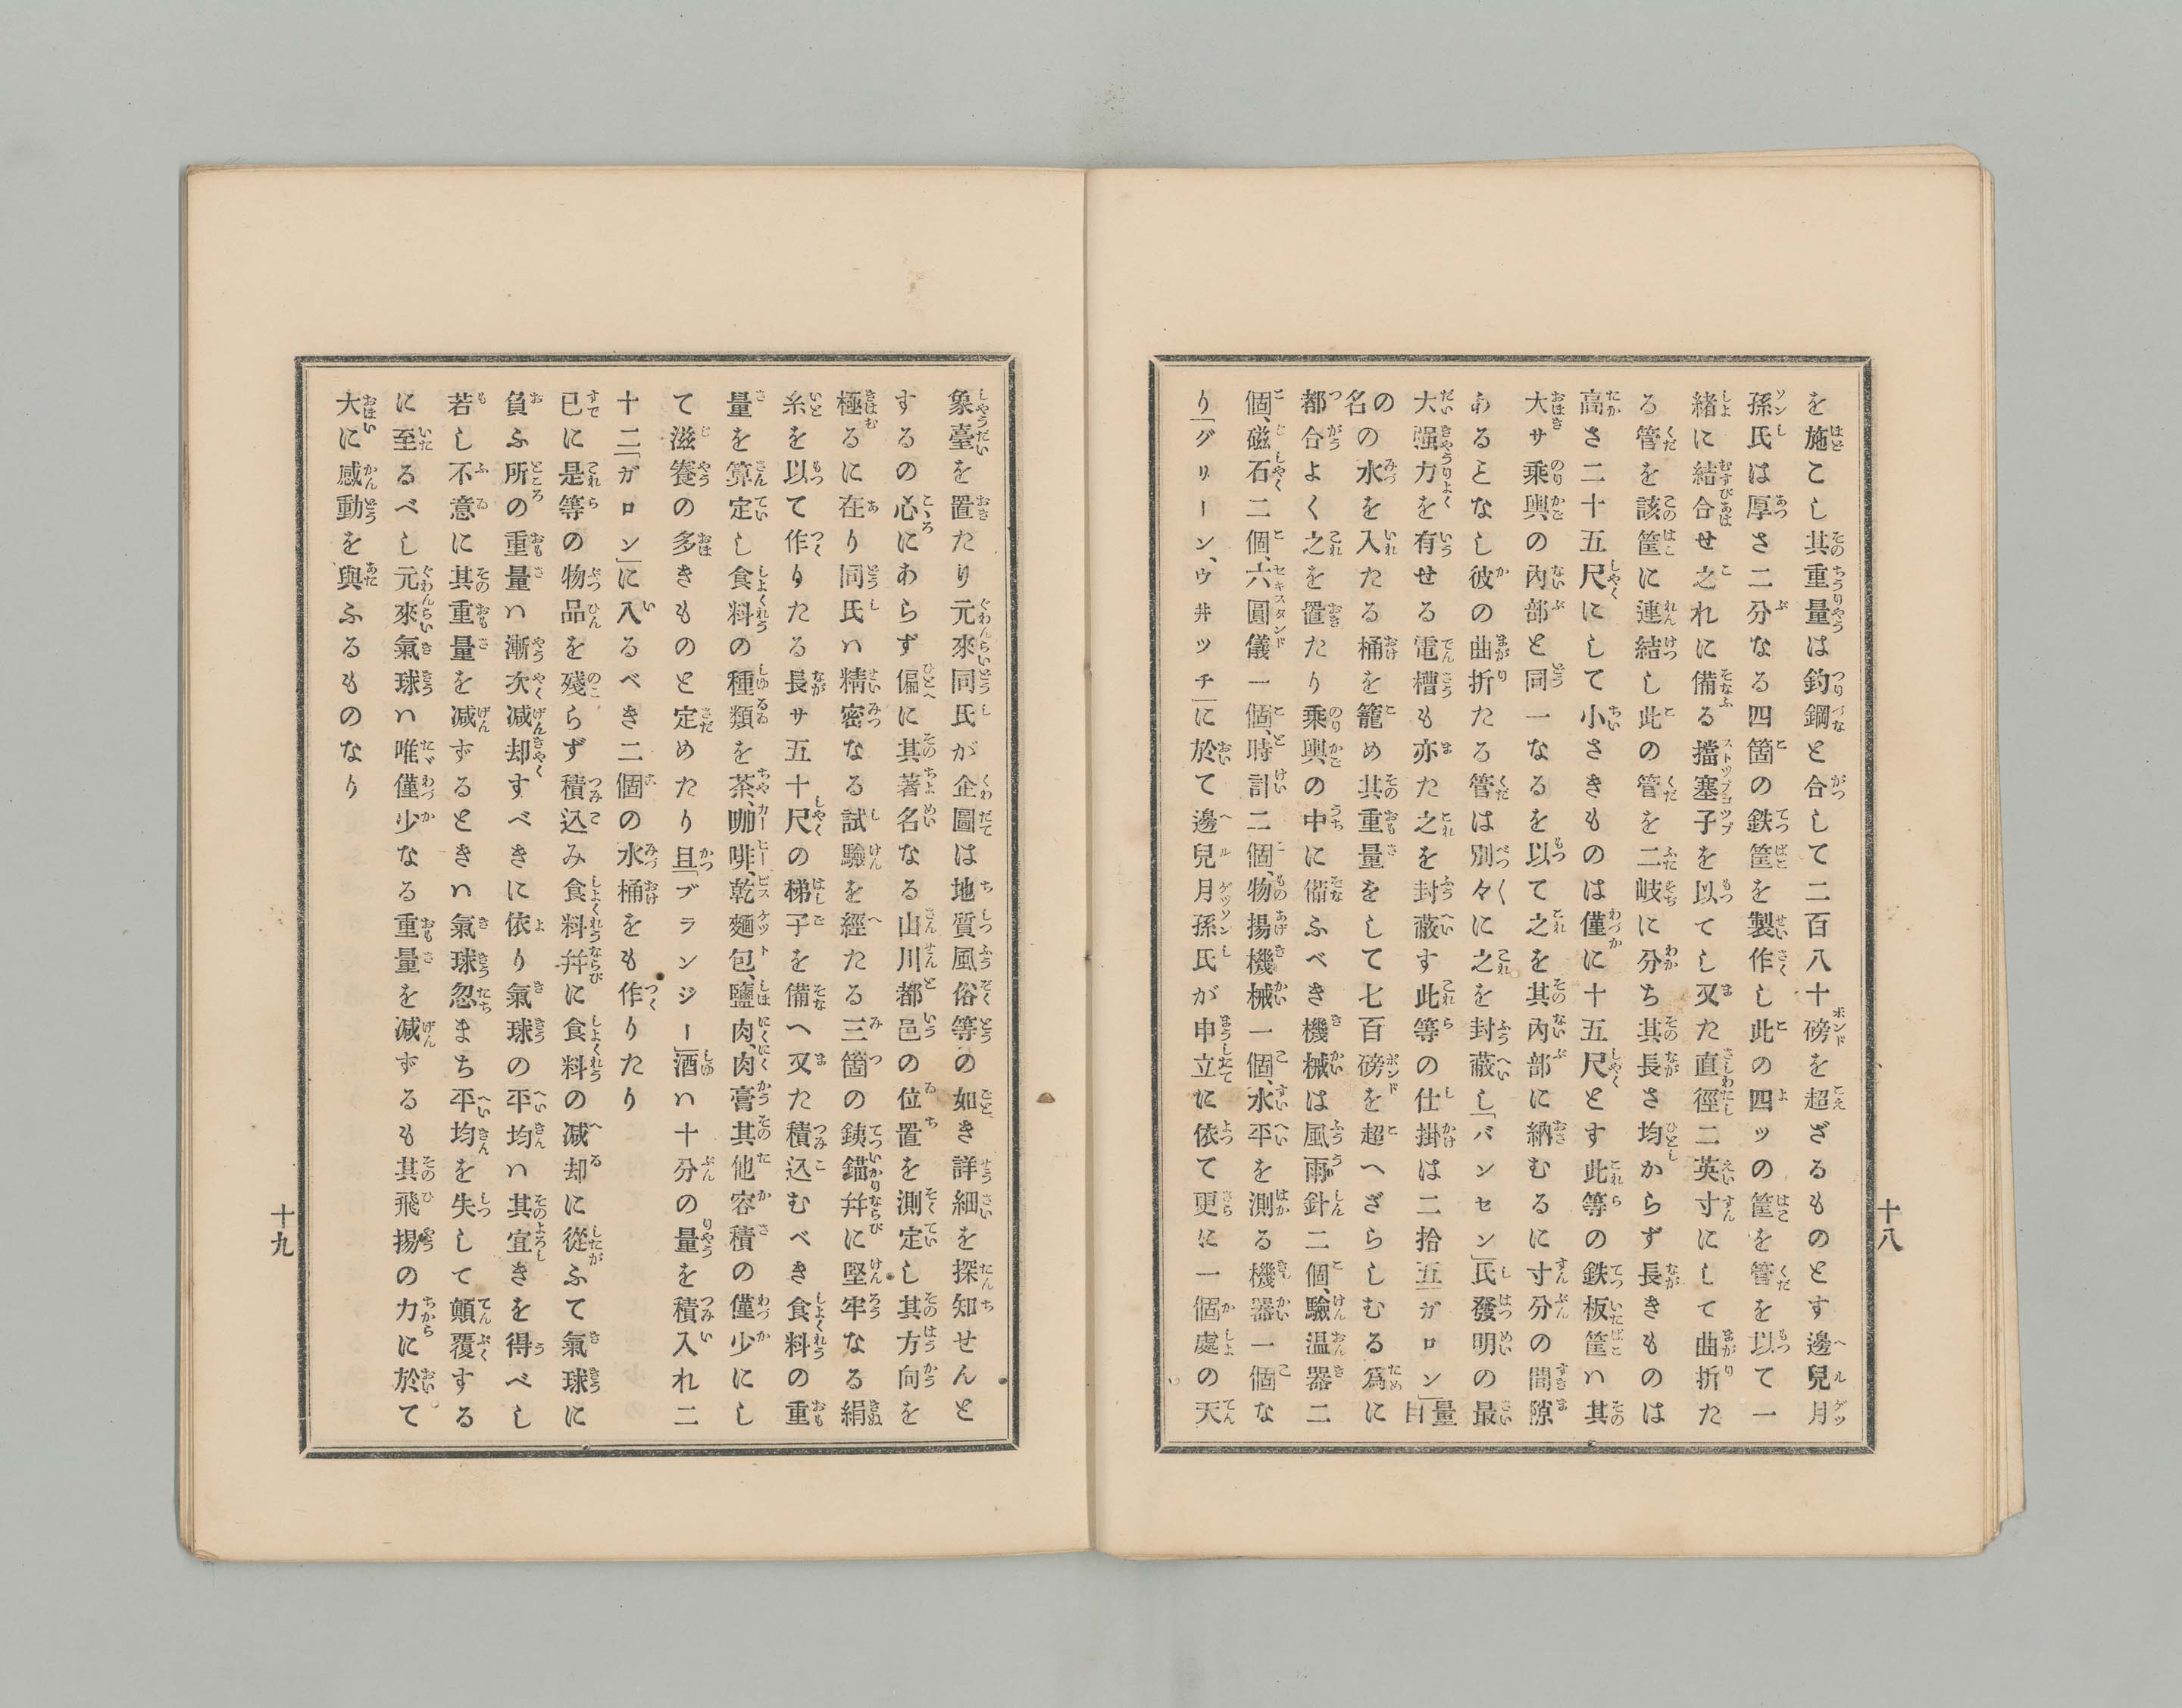 を施こし其重量は釣鋼と合して二百八十磅を超ざるものとす邊兒月
孫氏は厚さ二分なる四箇の鉄筐を製作し此の四ッの筐を管を以て一
緒に結合せ之れに備る擋塞子を以てし又た直徑二英寸にして曲折た
る管を該筐に連結し此の管を二岐に分ち其長さ均からず長きものは
高さ二十五尺にして小さきものは僅に十五尺とす此等の鉄板筐ハ其
大サ乘輿の內部と同一なるを以て之を其內部に納むるに寸分の間隙
あるとなし彼の曲折たる管は別々に之を封蔽し「バンセン」氏發明の最
大强力を有せる電槽も亦た之を封蔽す此等の仕掛は二拾五「ガロン」量目
の名の水を入たる桶を籠め其重量をして七百磅を超へざらしむる爲に
都合よく之を置たり乘輿の中に備ふべき機械は風雨針二個、驗温器二
個、磁石二個、六圓儀一個、時計二個、物揚機械一個、水平を測る機器一個な
り「グリーン、ウ井ッチ」に於て邊兒月孫氏が申立に依て更に一個處の天
十八
象臺を置たり元來同氏が企圖は地質風俗等の如き詳細を探知せんと
するの心にあらず偏に其著名なる山川都邑の位置を測定し其方向を
極るに在り同氏ハ精密なる試驗を經たる三箇の銕錨幷に堅牢なる絹
糸を以て作りたる長サ五十尺の梯子を備へ又た積込むべき食料の重
量を算定し食料の種類を茶、咖啡、乾麵包、鹽肉、肉膏其他容積の僅少にし
て滋養の多きものと定めたり且「ブランジー」酒ハ十分の量を積入れ二
十二「ガロン」に入るべき二個の水桶をも作りたり
已に是等の物品を殘らず積込み食料幷に食料の減却に從ふて氣球に
負ふ所の重量ハ漸次減却すべきに依り氣球の平均ハ其宜きを得べし
若し不意に其重量を減ずるときハ氣球忽まち平均を失して顛覆する
に至るべし元來氣球ハ唯僅少なる重量を減ずるも其飛揚の力に於て
大に感動を與ふるものなり
十九